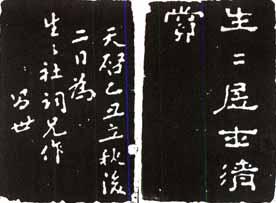 生〻居士清
賞
天啓乙丑立秋後
二日為
生〻社詞兄作
馮世